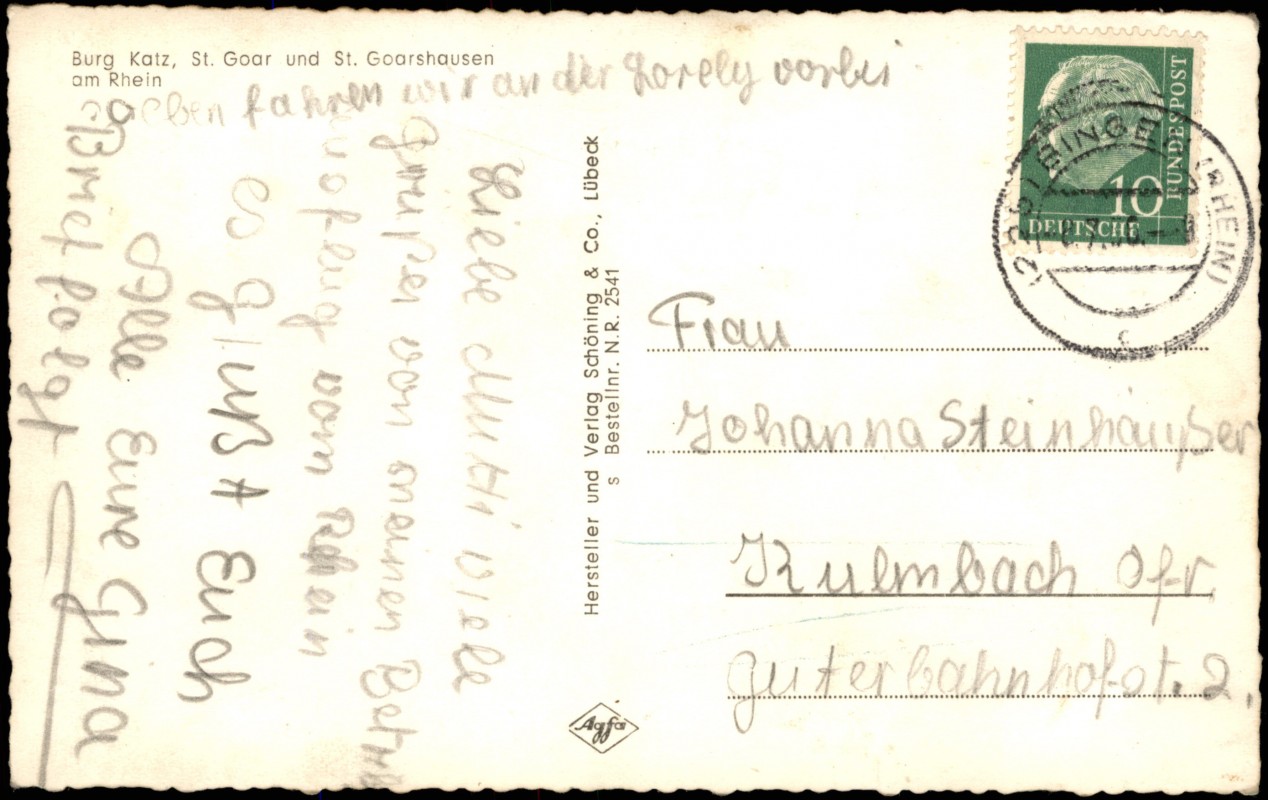 Burg Katz, St. Goar und St. Goarshausen
am Rhein
soeben fahren wir an der Lorely vorbei
Liebe Mutti viele
Grüße von meinen Betr
Ausflug vom Rhein
es grüßt Euch
Alle Eure Gina
Brief folgt
Hersteller und Verlag Schöning & Co., Lübeck
s Bestellnr. N.R. 2541
Agfa
10
BUNDESPOST
DEUTSCHE
BINGEN (RHEIN)
c
Frau
Johanna Steinhäußer
Kulmbach Ofr.
Güterbahnhofst. 2,